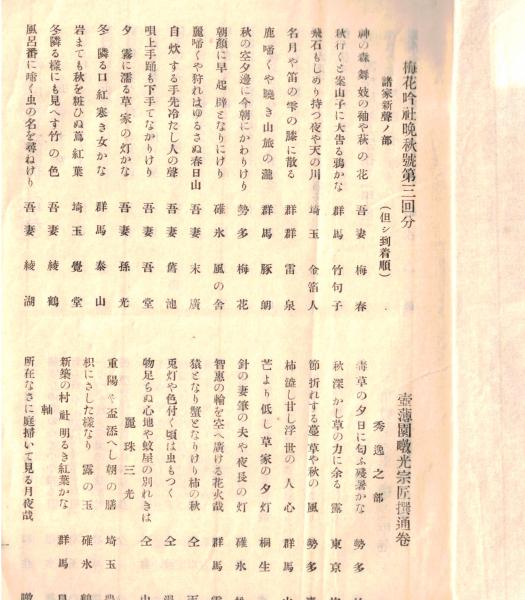 梅花吟社晩秋號第三回分
諸家新聲ノ部　（但シ到着順）
神の森舞妓の袖や萩の花　吾妻　梅春
秋行くと案山子に大吿る鴉かな　群馬　竹句子
飛石もしめり持つ夜や天の川　埼玉　金箔人
名月や笛の雫の膝に散る　群群　雷泉
鹿啼くや曉き山旅の瀧　群馬　豚朗
秋の空夕邊に今朝にかわりけり　勢多　梅花
朝顔に早起癖となりにけり　碓氷　風の舎
麗啼くや狩れはゆるさぬ春日山　吾妻　末廣
自炊する手先冷たし人の聲　吾妻　舊池
唄上手踊も下手てなかりけり　吾妻　吾堂
夕霧に濡る草家の灯かな　吾妻　孫光
冬隣る口紅寒き女かな　群馬　泰山
岩までも秋を粧ひぬ蔦紅葉　埼玉　覺堂
冬隣る樣にも見へす竹の色　吾妻　綾鶴
風呂番に啼く虫の名を尋ねけり　吾妻　綾湖
壺蓮園暾光宗匠撰通卷
秀逸之部
草の夕日に匂ふ殘暑かな　勢多
秋深かし草の力に余る露　東京
節折れする蔓草や秋の風　勢多
柿澁し甘し浮世の人心　群馬
芒より低し草家の夕灯　桐生
針の妻筆の夫や夜長の灯　碓氷
智惠の輪を空へ廣ける花火哉　群馬
猿となり蟹となりけり柿の秋　仝
兎灯や色付く頃は虫もつく　仝
物足らぬ心地や蚊屋の別れきは　仝
麗珠三光
重陽や盃添へし朝の膳　埼玉
枳にさした樣なり露の玉　碓氷
新築の村社明るき紅葉かな　群馬
軸
所在なさに庭掃いて見る月夜哉　暾